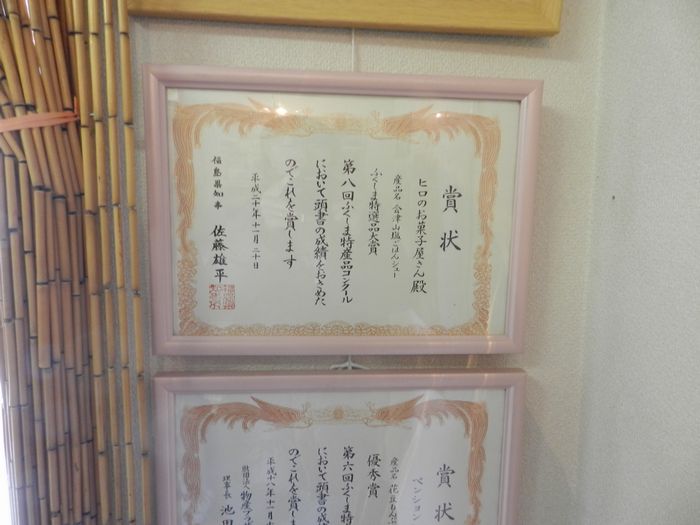 賞状
ヒロのお菓子屋さん殿
産品名 会津山塩ごはんシュー
ふくしま特選品大賞
第八回ふくしま特産品コンクール
において頭書の成績をおさめた
のでこれを賞します
平成二十年十一月二十日
福島県知事 佐藤雄平
賞状
ペンション
産品名 花豆
優秀賞
第六回ふくしま特
において頭書の成
のでこれを賞しま
平成十八年十一月
財団法人物産プラ
理事長 池田